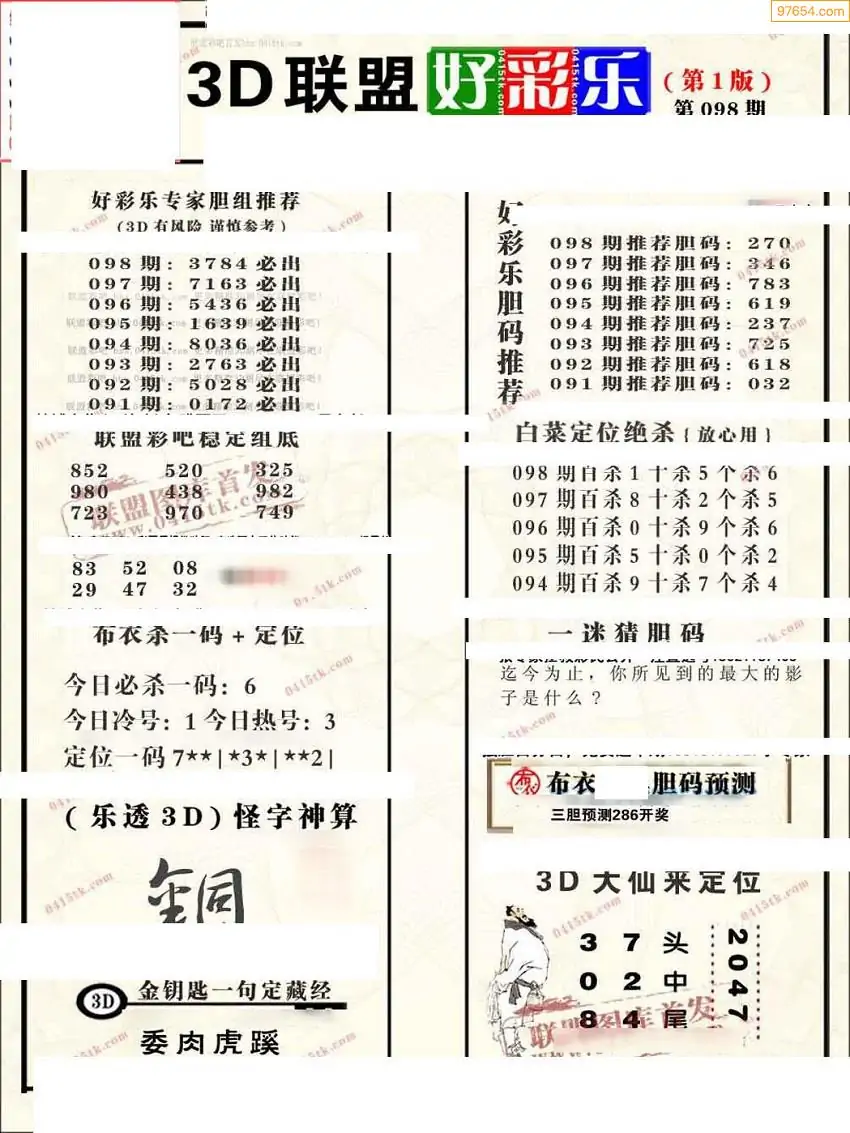 97654.com
3D联盟好彩乐(第1版)
第098期
好彩乐专家胆组推荐
(3D有风险 谨慎参考)
098期: 3784必出
097期: 7163必出
096期: 5436必出
095期: 1639必出
094期: 8036必出
093期: 2763必出
092期: 5028必出
091期: 0172必出
联盟彩吧稳定组底
852 520 325
980 438 982
723 970 749
联盟图库首发
www.0415tk.com
83 52 08
29 47 32
布衣杀一码+定位
今日必杀一码: 6
今日冷号: 1 今日热号: 3
定位一码 7**|*3*|**2|
(乐透3D)怪字神算
銅
3D 金钥匙一句定藏经
委肉虎蹊
好彩乐胆码推荐
098期推荐胆码: 270
097期推荐胆码: 346
096期推荐胆码: 783
095期推荐胆码: 619
094期推荐胆码: 237
093期推荐胆码: 725
092期推荐胆码: 618
091期推荐胆码: 032
白菜定位绝杀{放心用}
098期百杀1十杀5个杀6
097期百杀8十杀2个杀5
096期百杀0十杀9个杀6
095期百杀5十杀0个杀2
094期百杀9十杀7个杀4
一迷猜胆码
迄今为止，你所见到的最大的影
子是什么？
布衣 胆码预测
三胆预测286开奖
3D大仙来定位
3 7 头
0 2 中
8 4 尾
2047
联盟图库首发